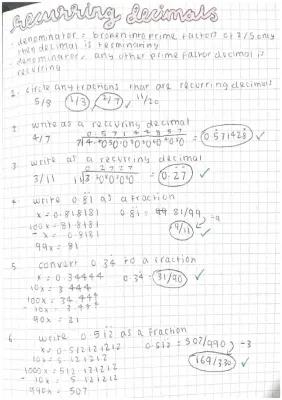 recurring decimals
• denominator = broken into prime factors of 2/5 only
then decimal is terminating
• denominator, any other prime factor decimal is
recurring
1. circle any fractions that are recurring decimals
5/8 1/3 4/7 11/20
2. write as a recurring decimal
4/7 = 0.571428 ✓
3. write as a recurring decimal
3/11 = 0.27 ✓
4. write 0.81 as a fraction
x = 0.818181 0.81 = 81/99 ÷9
100x = 81.8181 9/11 ✓
- x = 0.8181
99x = 81
5. convert 0.34 to a fraction
x = 0.34444 0.34 = 31/90 ✓
10x = 3.444
100x = 34.444
- 10x = 3.444
90x = 31
6. write 0.512 as a fraction
x = 0.512121212 0.512 = 507/990 ÷3
10x = 5.121212
1000x = 512.121212 169/330 ✓
- 10x = 5.121212
990x = 507